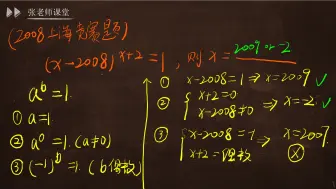 张老师课堂
(2008上海竞赛题)
(x-2008)^{x+2}=1, 则 x= 2009 or -2
a^b=1.
① a=1.
② a^0=1.(a≠0)
③ (-1)^b=1.(b偶数)
① x-2008=1⇒x=2009 ✓
② { x+2=0
x-2008≠0 ⇒x=-2 ✓
③ { x-2008=-1⇒x=2007
x+2=偶数 ⓧ